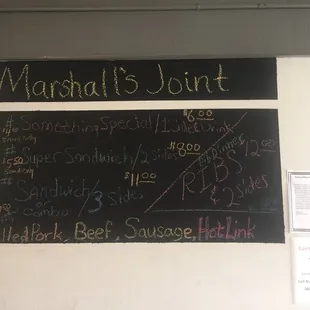 Marshall's Joint
$6.00
Something Special / 1 side + Drink
Super Sandwich / 2 sides $8.00
Sandwich / 3 Sides $11.00
or
Combo
Dinner $12.00
RIBS
& 2 sides
Pork, Beef, Sausage, Hot Link